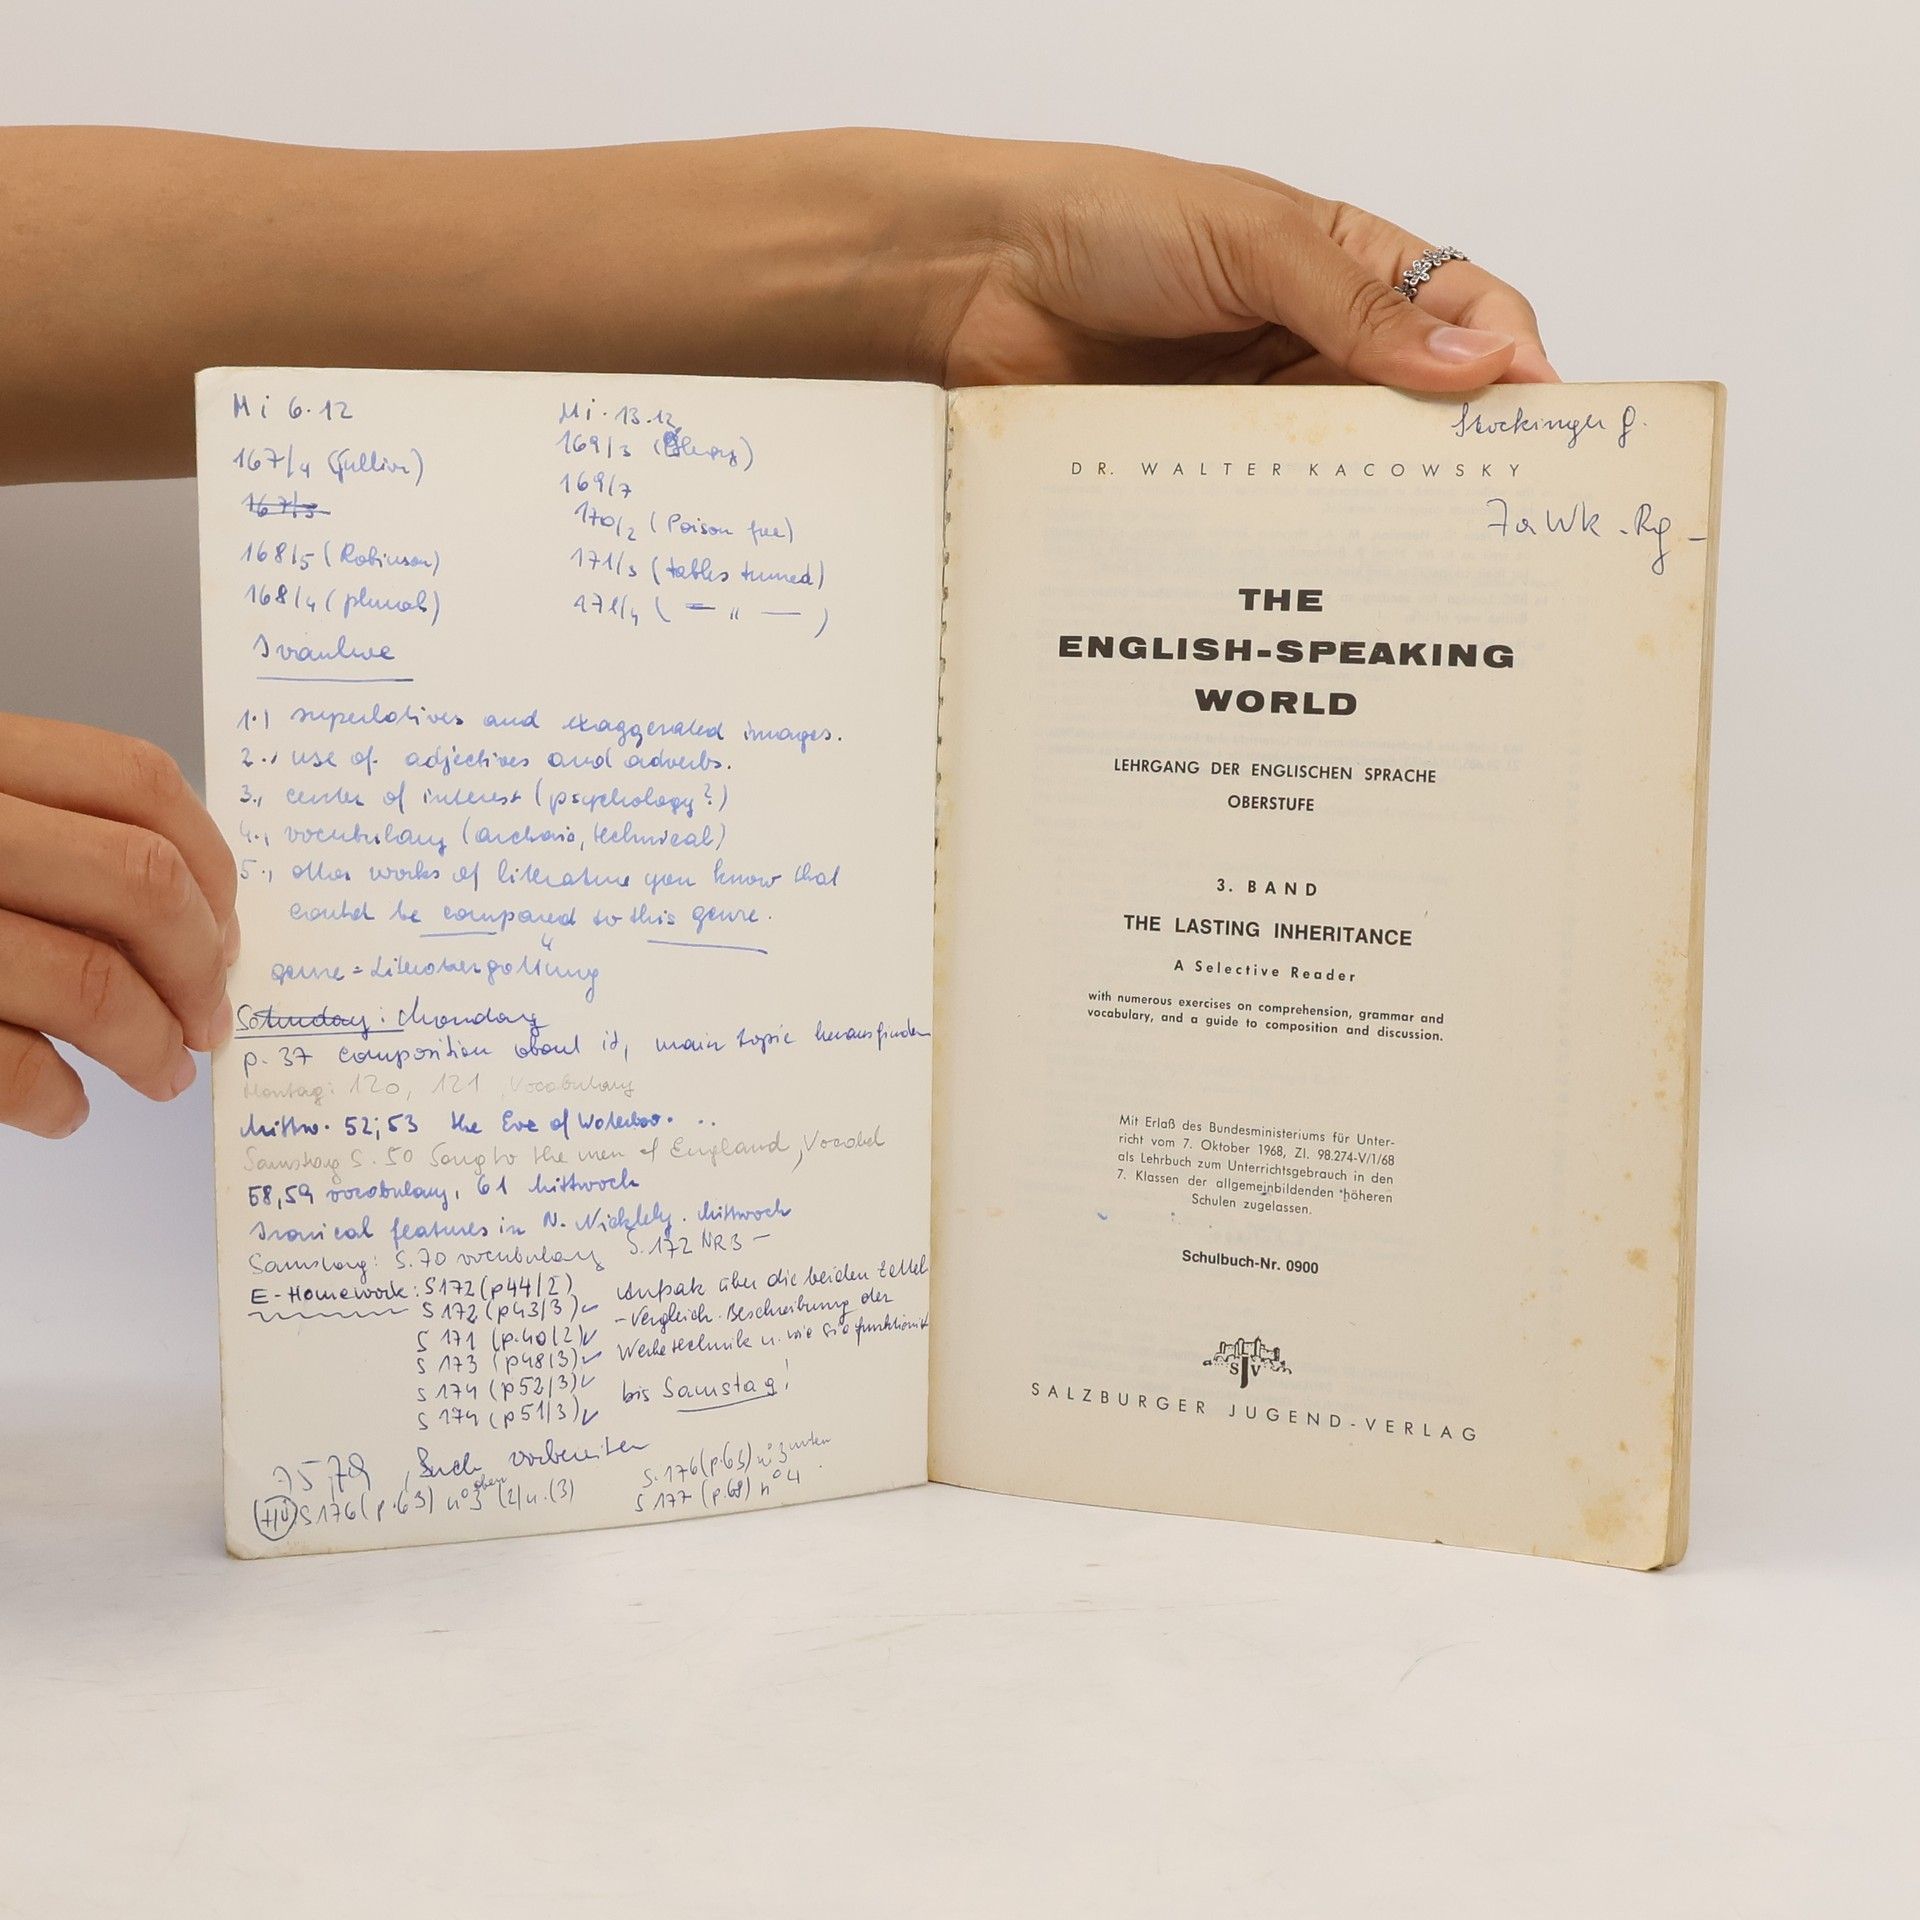 Mi 6.12
167/4 (Gulliver)
167/3
168/5 (Robinson)
168/4 (plurals)
Ivanhoe
Mi. 13.12
169/3
169/7
170/2 (Poison free)
171/3 (tables turned)
171/4 ( — " — )
1., superlatives and exaggerated images.
2., use of adjectives and adverbs.
3., center of interest (psychology?)
4., vocabulary (archaic, technical)
5., other works of literature you know that
could be compared to this genre.
genre = Literaturgattung
Saturday: Monday
p. 37 composition about it, main topic herausfinden
Montag: 120, 121 Vocabulary
Mittw. 52; 53 the Eve of Waterloo...
Samstag S. 50 Song to the men of England, Vocabel
58, 59 vocabulary, 61 Mittwoch
Ironical features in N. Nickleby. Mittwoch
Samstag: S. 70 vocabulary S. 172 NR 3 -
E-Homework: S 172 (p 44/2)
S 172 (p 43/3) ✓
S 171 (p. 40/2) ✓
S 173 (p 48/3) ✓
S 174 (p 52/3) ✓
S 174 (p 51/3) ✓
Aufsatz über die beiden Zettel
- Vergleich. Beschreibung der
Werbetechnik u. wie sie funktioniert
bis Samstag!
75, 79, Buch vorbereiten
S 176 (p. 63) n° 3 oben (2) u. (3)
S. 176 (p. 63) n° 3 unten
S 177 (p. 68) n° 4
Stockinger G.
DR. WALTER KACOWSKY
7a Wk - Rg -
THE
ENGLISH-SPEAKING
WORLD
LEHRGANG DER ENGLISCHEN SPRACHE
OBERSTUFE
3. BAND
THE LASTING INHERITANCE
A Selective Reader
with numerous exercises on comprehension, grammar and
vocabulary, and a guide to composition and discussion.
Mit Erlaß des Bundesministeriums für Unter-
richt vom 7. Oktober 1968, Zl. 98.274-V/1/68
als Lehrbuch zum Unterrichtsgebrauch in den
7. Klassen der allgemeinbildenden höheren
Schulen zugelassen.
Schulbuch-Nr. 0900
SJV
SALZBURGER JUGEND-VERLAG